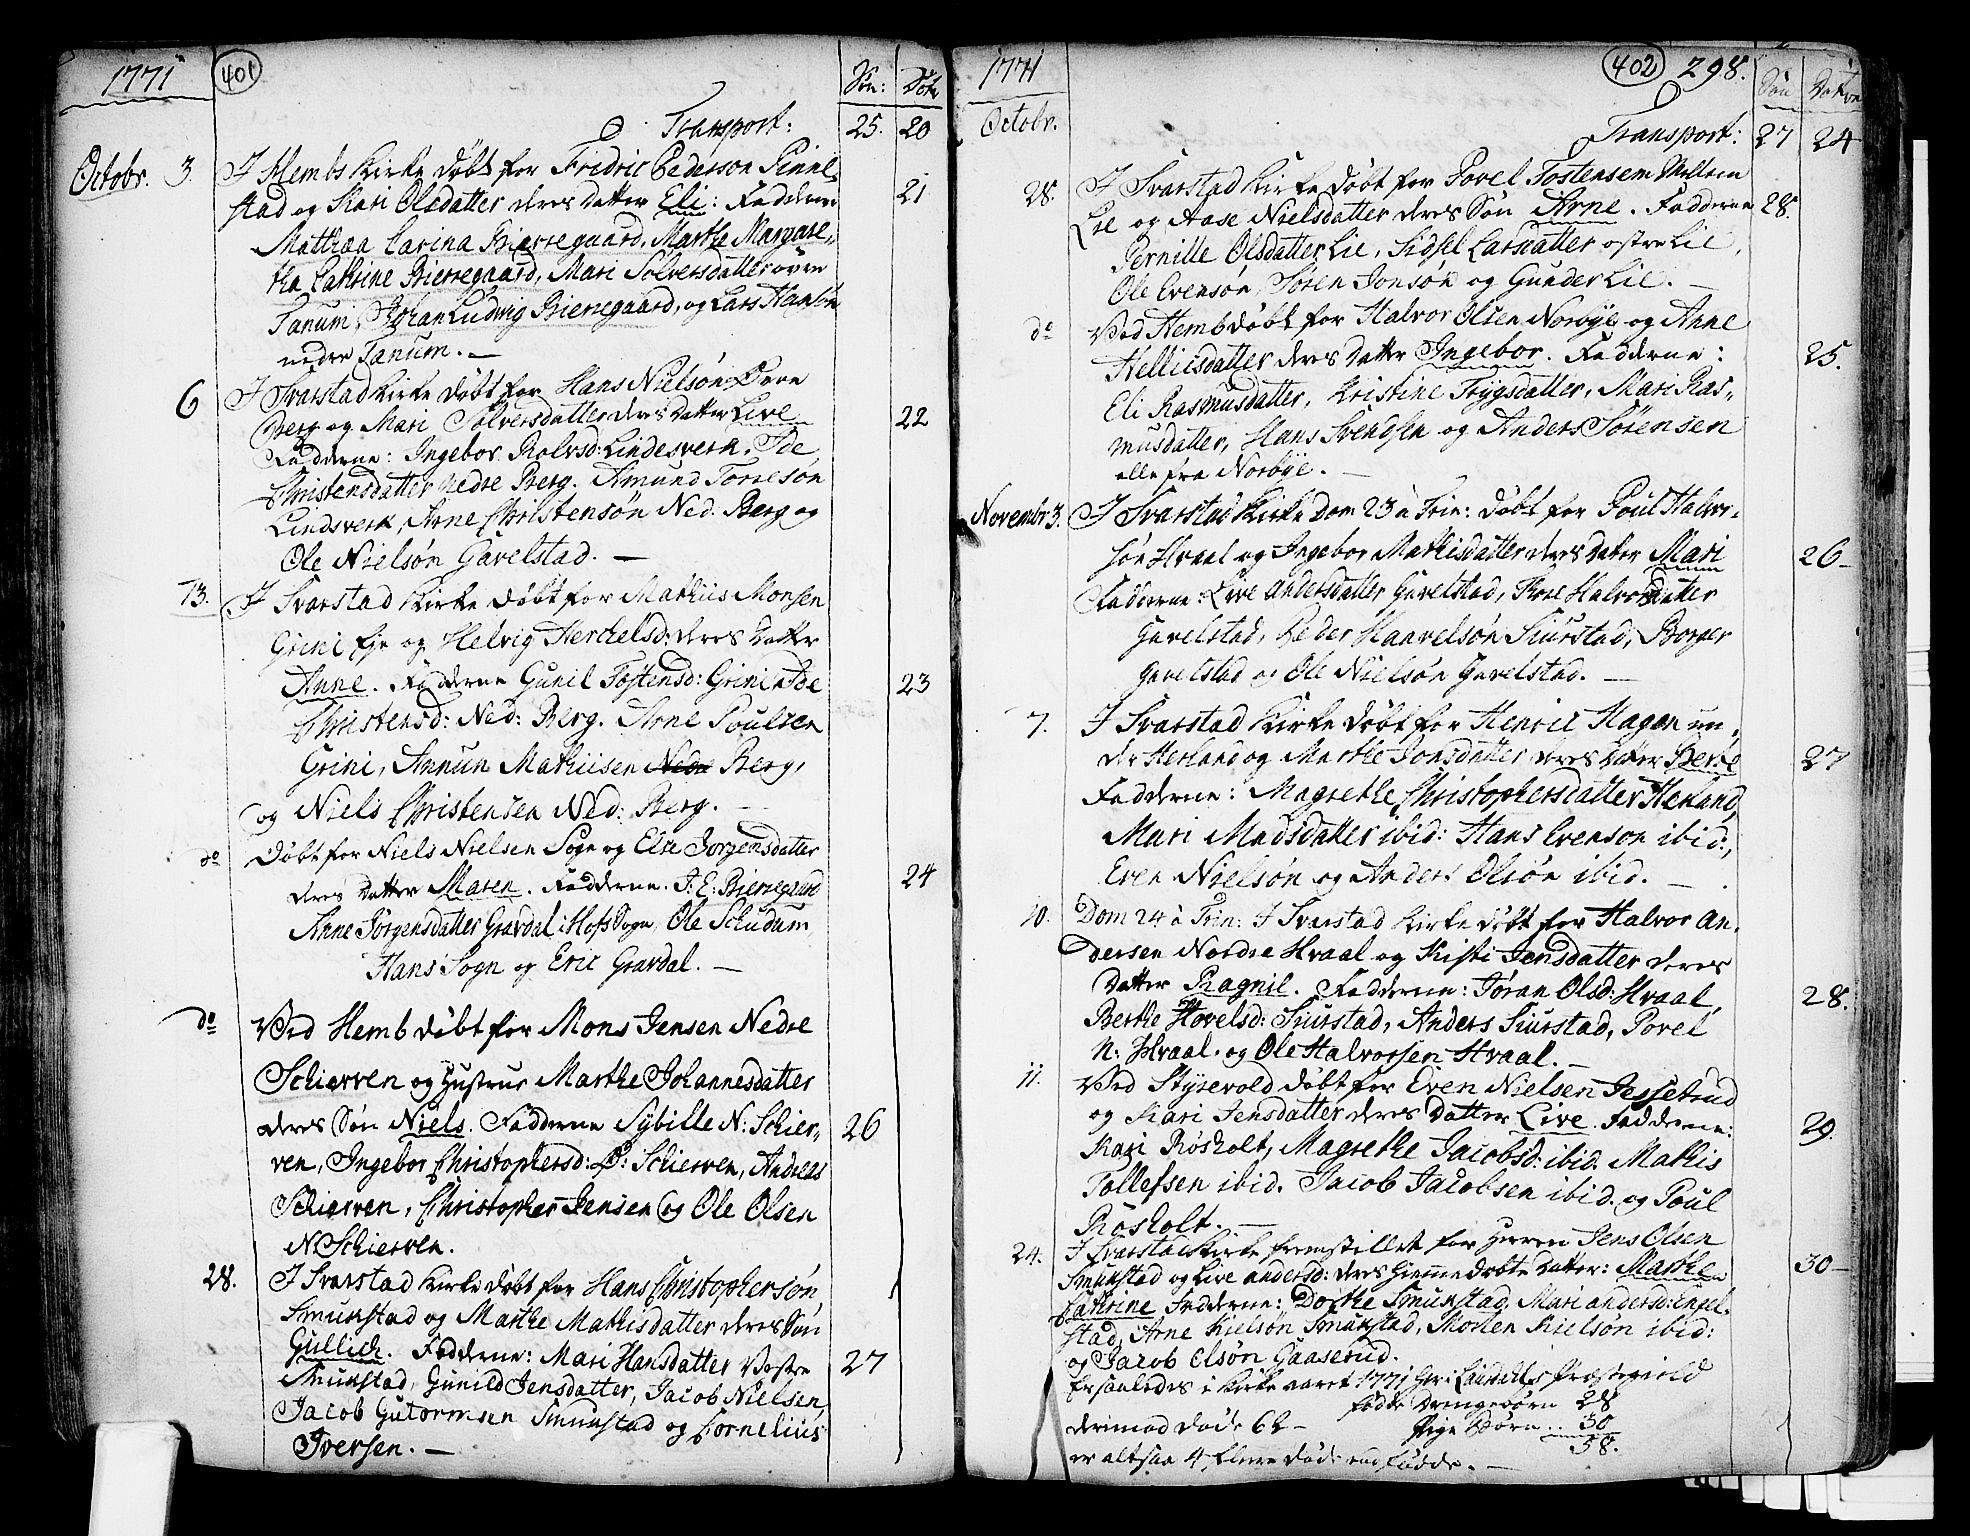 1771 401 Søn: Døtr
Transport: 25. 20
Octobr. 3. I Hembs Kirke døbt for Fridric Pederson Pinnel-
stad og Kari Olsdatter deres Datter Eli: Fadderne 21
Matthæa Carina Bierregaard, Marthe Margare-
tha Cathrine Bierregaard, Mari Solversdatter øvre
Tanum, Johan Ludvig Bierregaard, og Lars Hansøn
nedre Tanum. —
6 I Svarstad Kirke døbt for Hans Nielsøn
Berg og Mari Solversdatter deres Datter Live 22
Fadderne: Ingebor Rolvsd: Lindesverk, Ide
Christensdatter nedre Berg. Amund Torresøn
Lindsverk, Arne Christensøn Ned: Berg og
Ole Nielsøn Gavelstad. —
13. I Svarstad Kirke døbt for Mathiis Monsen
Grini eje og Helvig Herchelsd: deres Datter
Anne. Fadderne Gunil Tostensd: Grini Ide 23
Christensd: Ned: Berg. Arne Poulsen
Grini, Annun Mathiisen Nedre Berg,
og Niels Christensen Ned: Berg. —
do Døbt for Niels Nielsen Sogn og Else Jorgensdatter
deres Datter Maren. Fadderne. J: E: Bierregaard 24
Anne Jørgensdatter Gravdal i Hofs Sogn, Ole Schudum,
Hans Sogn og Eric Gravdal. —
do Ved Hemb døbt for Mons Jensen Nedre
Schierven og Hustrue Marthe Johannesdatter
deres Søn Niels. Fadderne Sybille N: Schier- 26
ven, Ingebor Christophersd: Ø: Schierven, Andreas
Schierven, Christopher Jensen og Ole Olsen
N Schierven.
28. I Svarstad Kirke døbt for Hans Christophersøn
Smukstad og Marthe Mathisdatter deres Søn
Gullich. Fadderne: Mari Hansdatter Vestre 27
Smukstad, Gunild Jensdatter, Jacob Nielsen,
Jacob Gutormsen Smukstad og Cornelius
Iversen. —
1771 402 298. Søn Døttre
Octobr. Transport: 27 24
28. I Svarstad Kirke døbt for Povel Tostensen Mellem
Lie og Aase Nielsdatter deres Søn Arne. Fadderne 28.
Pernille Olsdatter Lie, Sidsel Larsdatter østre Lie,
Ole Evensøn, Søren Jonsøn og Gunder Lie. —
do Ved Hemb døbt for Halvor Olsen Norbye og Anne
Hellicsdatter deres Datter Ingebor. Fadderne: 25.
Eli Rasmusdatter, Kristine Trygsdatter, Mari Ras-
musdatter, Hans Svendsen og Anders Sørensen
alle fra Norbye. —
Novembr 3. I Svarstad Kirke Dom 23 à Trin: døbt for Poul Halvor-
søn Hvaal og Ingebor Mathisdatter deres Datter Mari 26 —
Fadderne: Live Andersdatter Gavelstad, Thore Halvorsdatter
Gavelstad, Peder Hanvelsøn Siurstad, Borger
Gavelstad og Ole Nielsøn Gavelstad. —
7. I Svarstad Kirke døbt for Henric Hagen un-
der Herland og Marthe Jonsdatter deres Datter Berte 27
Fadderne: Magrethe Christophersdatter Herland,
Mari Madsdatter ibid: Hans Evenson ibid:,
Even Nielsøn og Anders Olsøn ibid. —
10. Dom 24 à Trin: I Svarstad Kirke døbt for Halvor An-
dersen Nordre Hvaal og Kisti Jensdatter deres
Datter Ragnil. Fadderne: Jøran Olsd: Hvaal, 28.
Berthe Hovelsd: Siurstad, Anders Siurstad, Povel
N: Hvaal. og Ole Halvorsen Hvaal. —
11. Ved Styrevold døbt for Even Nielsen Jessetrud
og Kari Jensdatter deres Datter Live. Fadderne: 29.
Kari Røsholt, Magrethe Jacobsd: ibid. Mathis
Tollefsen ibid. Jacob Jacobsen ibid. og Poul
Røsholt. —
24. I Svarstad Kirke fremstillet for Herren Jens Olsen
Smukstad og Live Andersd: deres Hiemmedøbte Datter: Marthe 30 —
Cathrine Fadderne: Dorthe Smukstad, Mari Andersd: Engel-
stad, Arne Kielsøn Smukstad, Morten Kielsøn ibid:
og Jacob Elsøn Gaaserud.
Er saaledes i Kirke aaret 1771 her i Laurdahls Præstegield
fødte Drengebørn 28
derimod døde 62 — Pige Børn .. 30
58.
er altsaa 4 flere døde end fødde. —